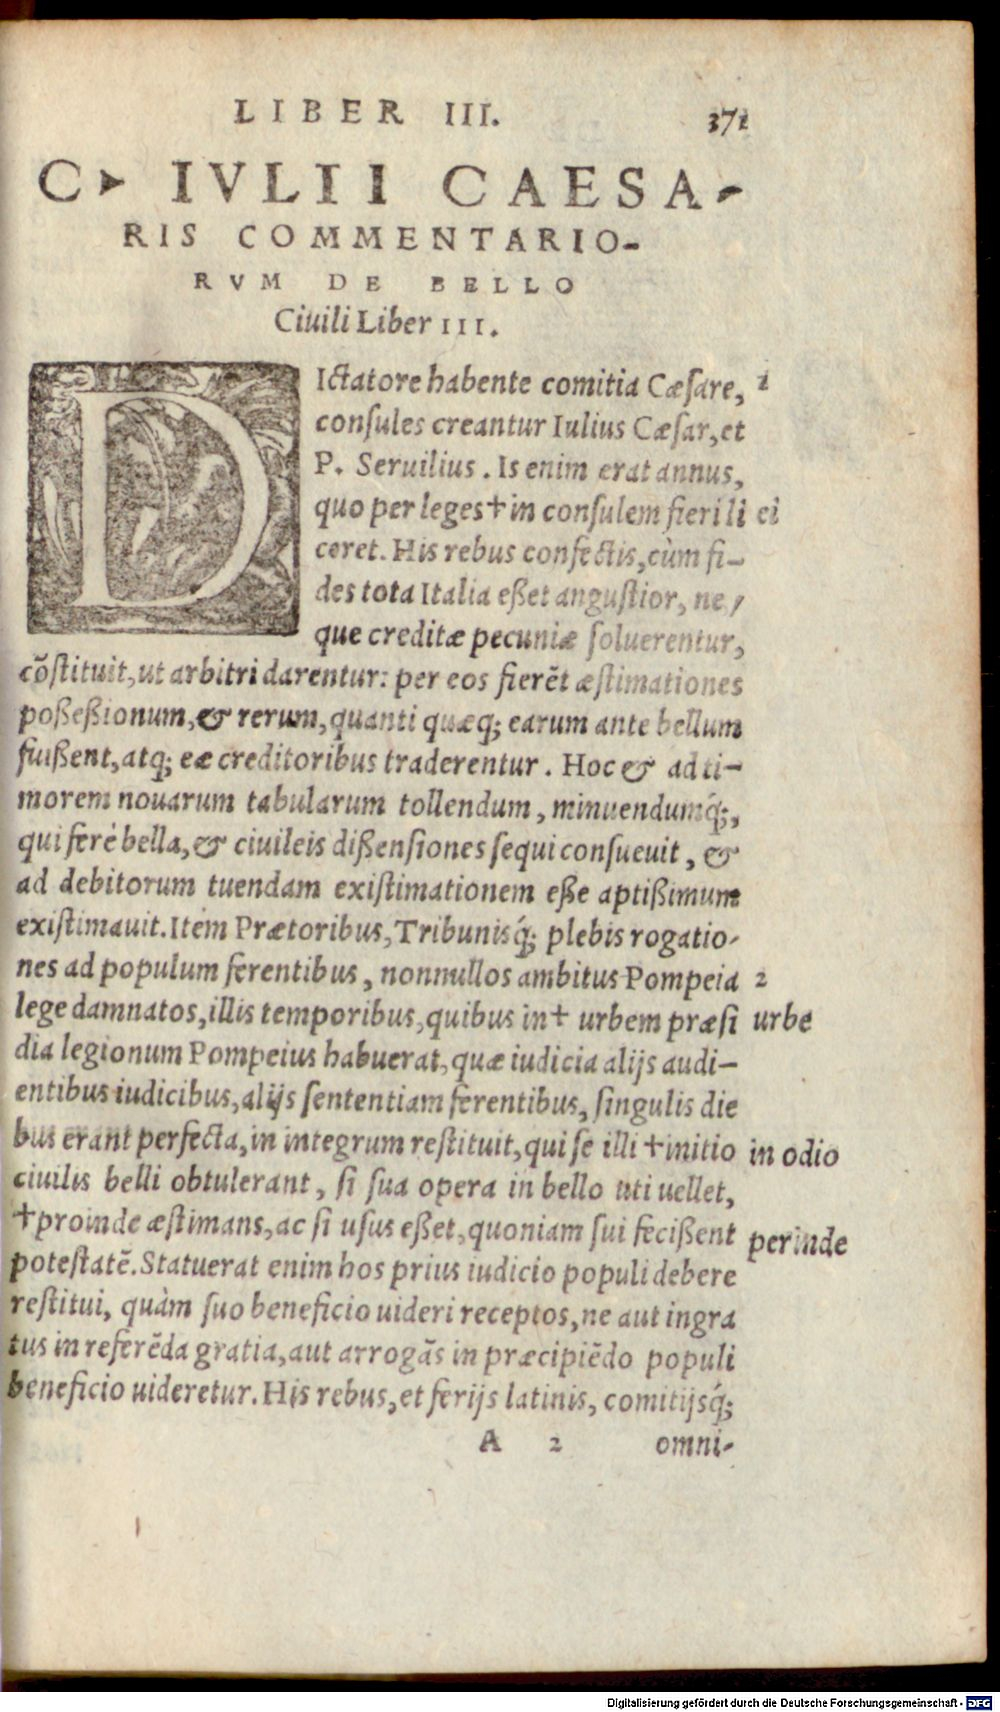 LIBER III. 371
C. IVLII CAESA-
RIS COMMENTARIO-
RVM DE BELLO
Ciuili Liber III.
DIctatore habente comitia Cæſare, 1
conſules creantur Iulius Cæſar, et
P. Seruilius. Is enim erat annus,
quo per leges† in conſulem fieri li ei
ceret. His rebus confectis, cùm fi-
des tota Italia eßet anguſtior, ne-
que creditæ pecuniæ ſoluerentur,
cõſtituit, ut arbitri darentur: per eos fierẽt æſtimationes
poßeßionum, & rerum, quanti quæq; earum ante bellum
fuißent, atq; eæ creditoribus traderentur. Hoc & ad ti-
morem nouarum tabularum tollendum, minuendumq́;,
qui ferè bella, & ciuileis dißenſiones ſequi conſueuit, &
ad debitorum tuendam exiſtimationem eße aptißimum
exiſtimauit. Item Prætoribus, Tribunisq́; plebis rogatio-
nes ad populum ferentibus, nonnullos ambitus Pompeia 2
lege damnatos, illis temporibus, quibus in† urbem præſi urbe
dia legionum Pompeius habuerat, quæ iudicia alijs audi-
entibus iudicibus, alijs ſententiam ferentibus, ſingulis die
bus erant perfecta, in integrum reſtituit, qui ſe illi †initio in odio
ciuilis belli obtulerant, ſi ſua opera in bello uti uellet,
†proinde æſtimans, ac ſi uſus eßet, quoniam ſui fecißent perinde
poteſtatẽ. Statuerat enim hos prius iudicio populi debere
reſtitui, quàm ſuo beneficio uideri receptos, ne aut ingra
tus in referẽda gratia, aut arrogãs in præcipiẽdo populi
beneficio uideretur. His rebus, et ferijs latinis, comitijsq́;
A 2 omni-
Digitalisierung gefördert durch die Deutsche Forschungsgemeinschaft - DFG